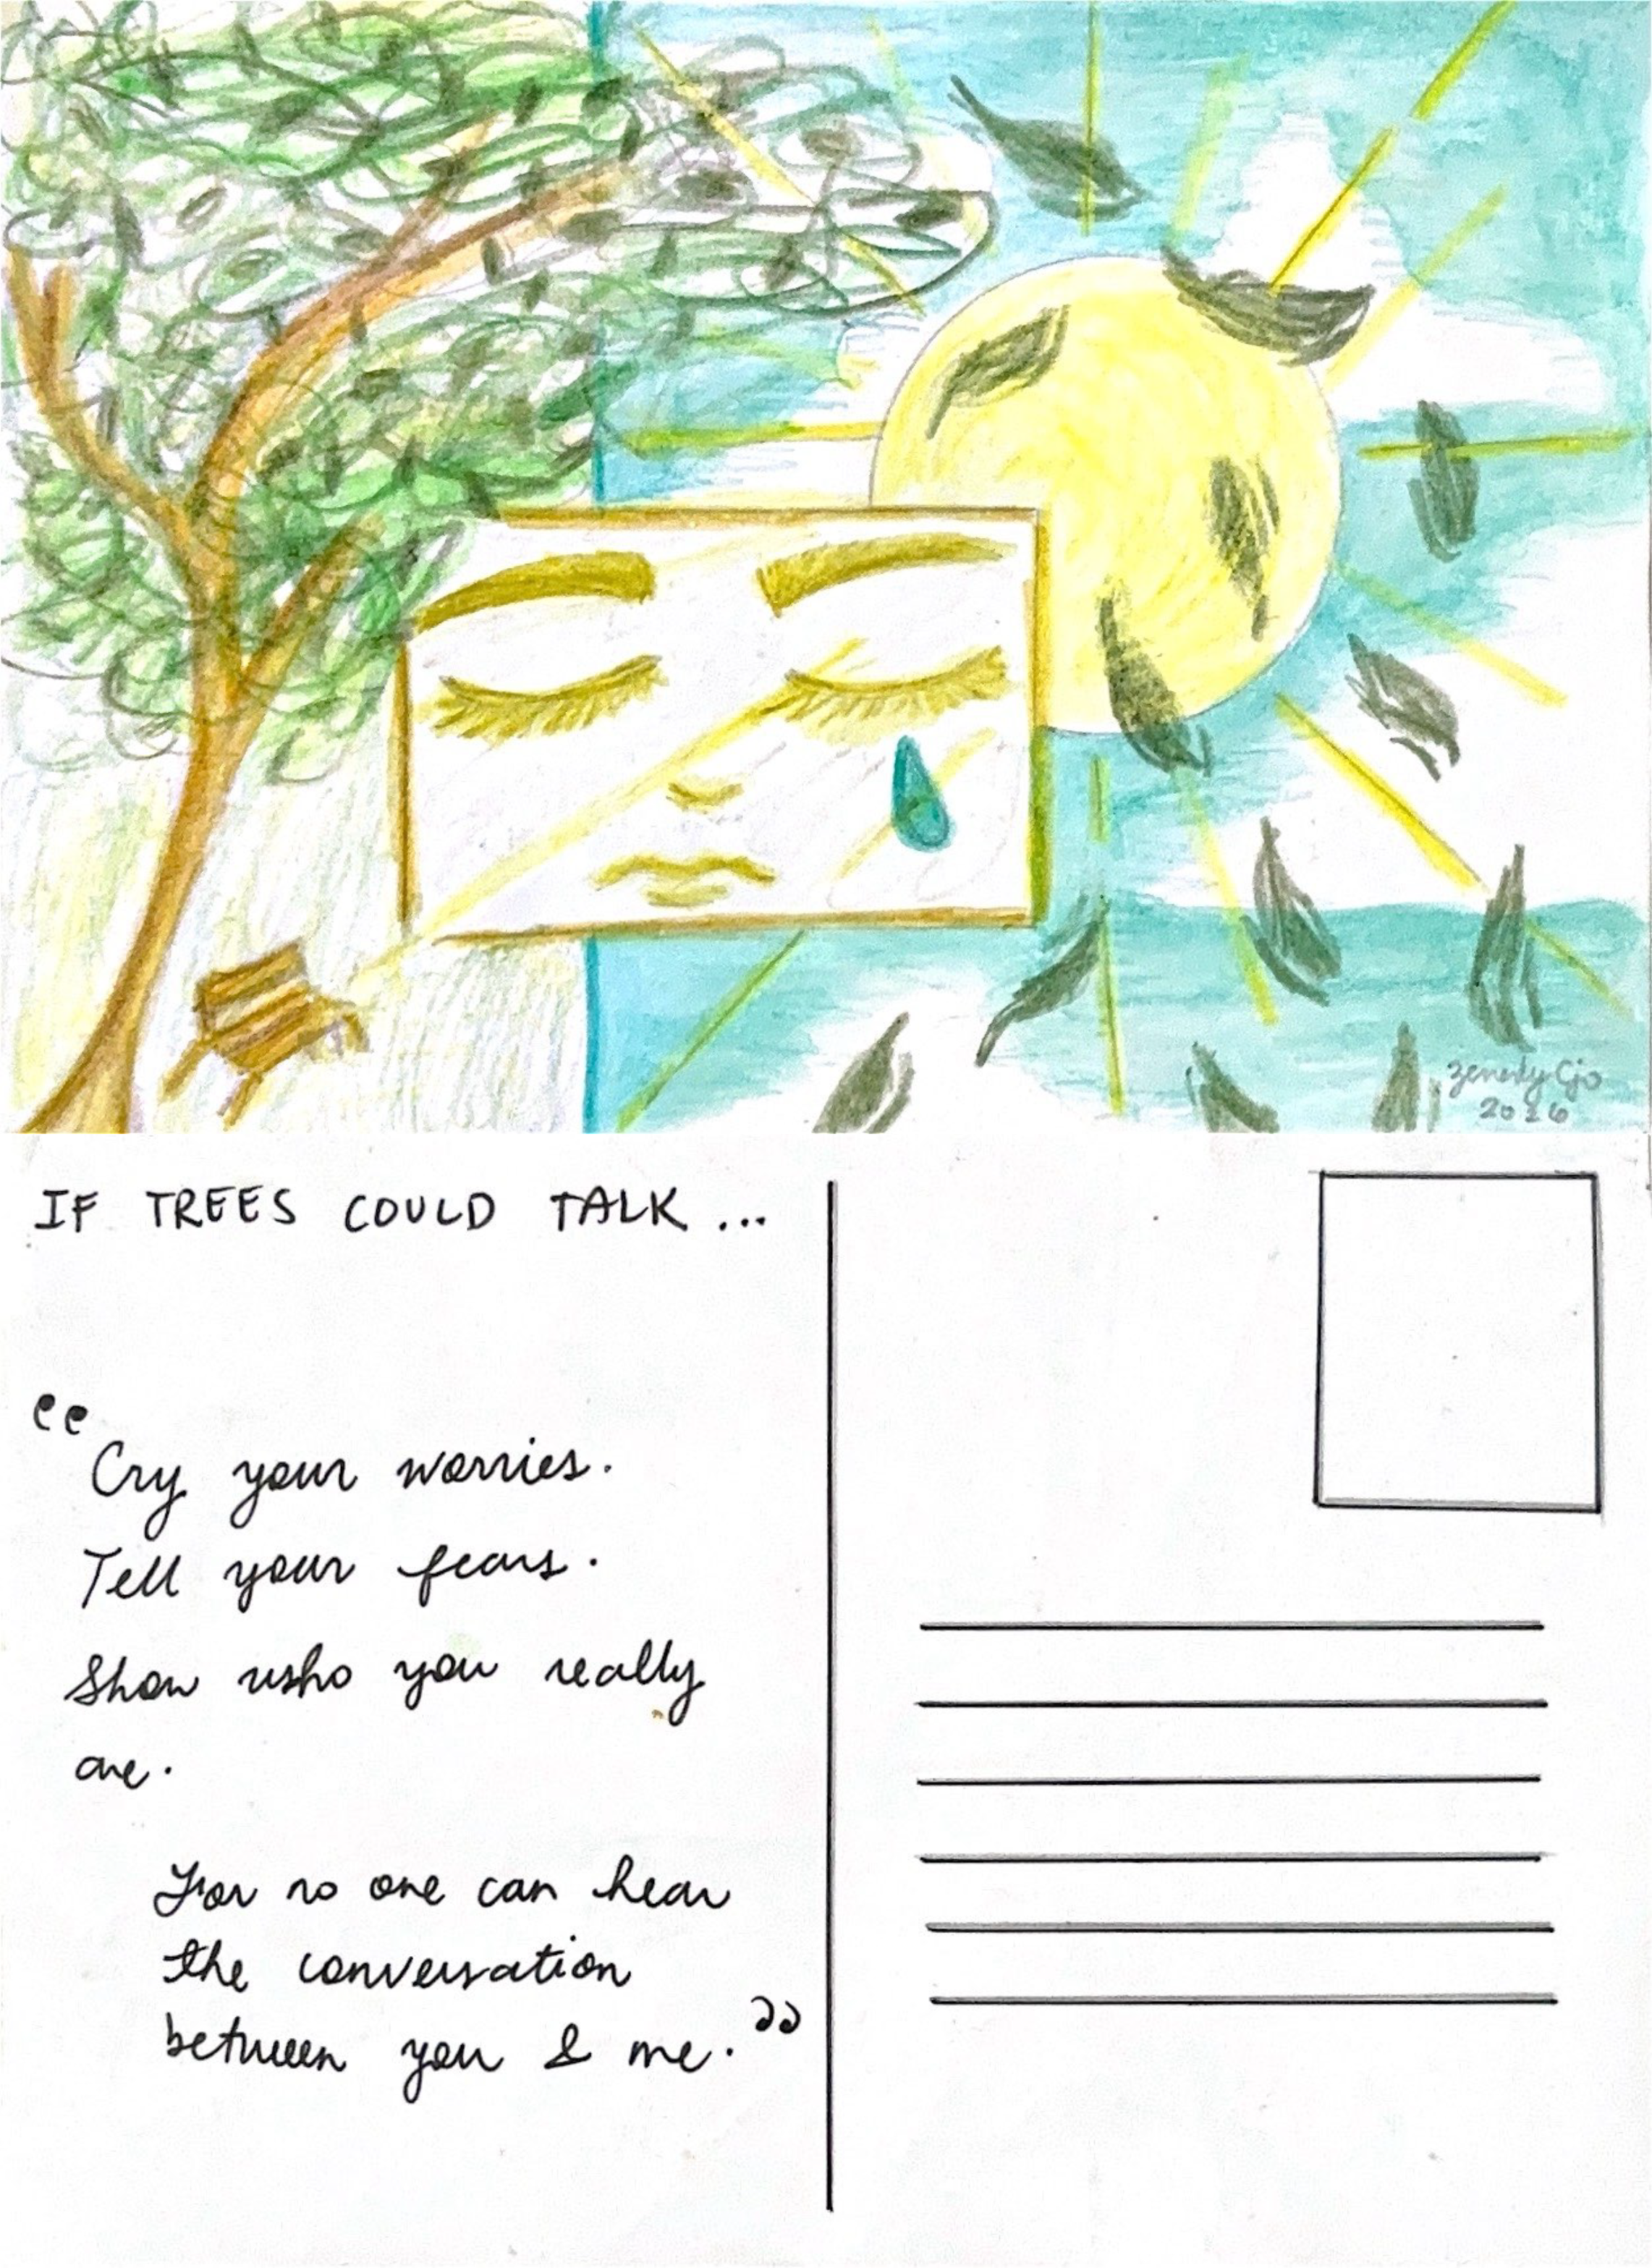 2026
IF TREES COULD TALK ...
“Cry your worries.
Tell your fears.
Show who you really
are.
For no one can hear
the conversation
between you & me.”